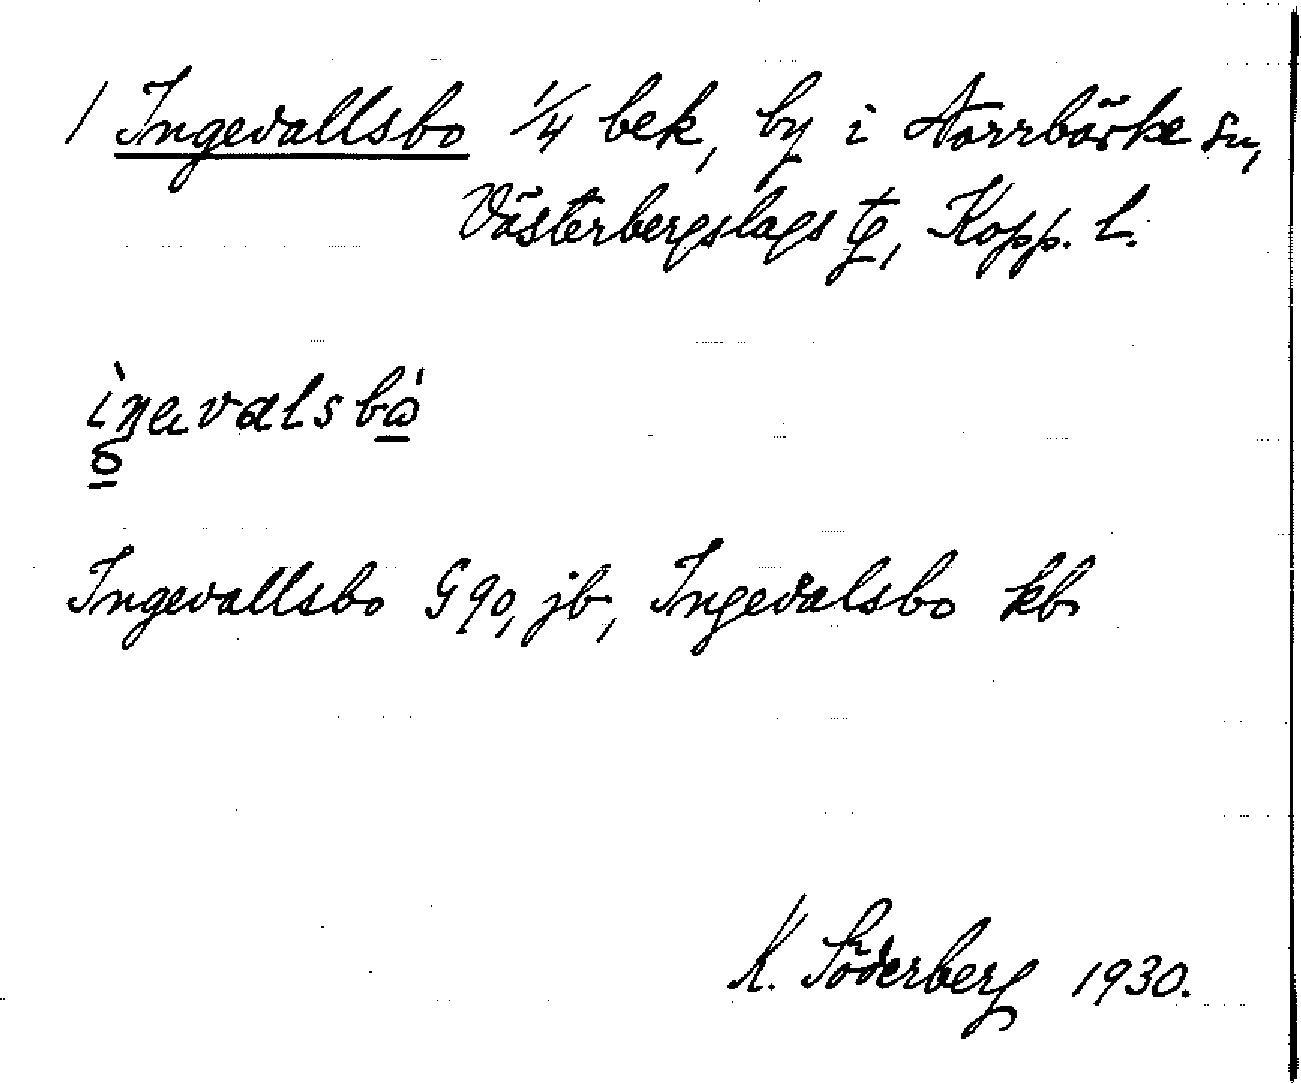 1 Ingevallsbo 1/4 bek, by i Norrbärke sn,
Västerbergslags tg, Kopp. L.
ìŋavalsbó
Ingevallsbo G 90, jb, Ingevalsbo kb
K. Söderberg 1930.